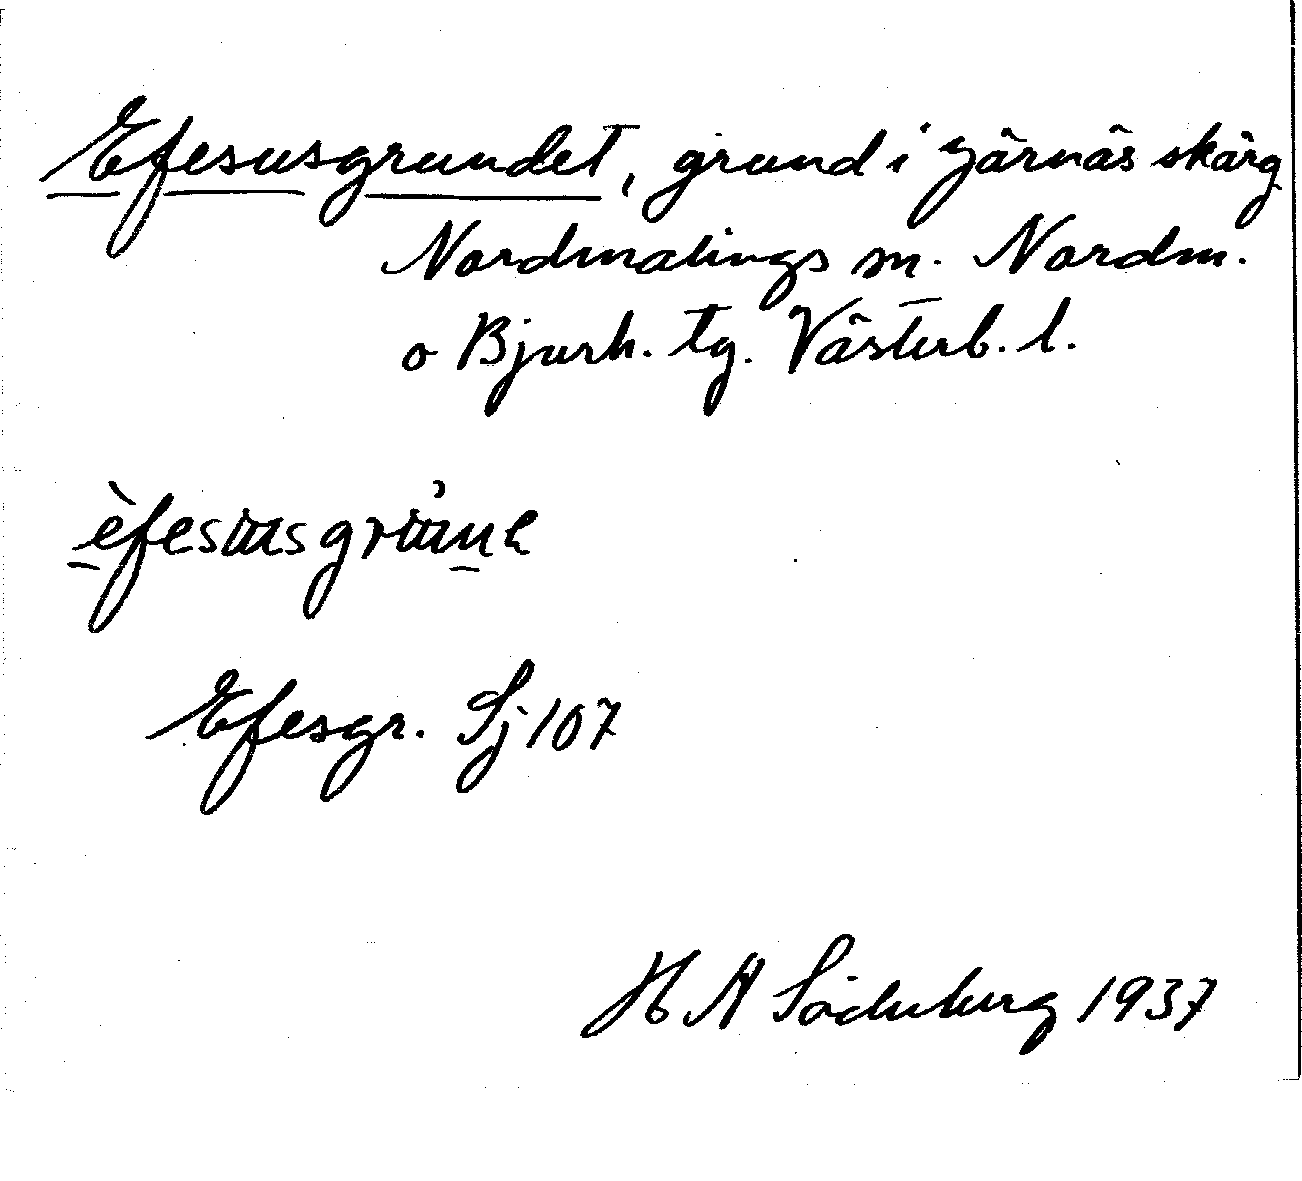 Efesusgrundet, grund i Järnäs skärg
Nordmalings sn. Nordm.
o Bjurh. tg. Västerb. l.
Efesgr. Sj 107
H A Söderberg 1937